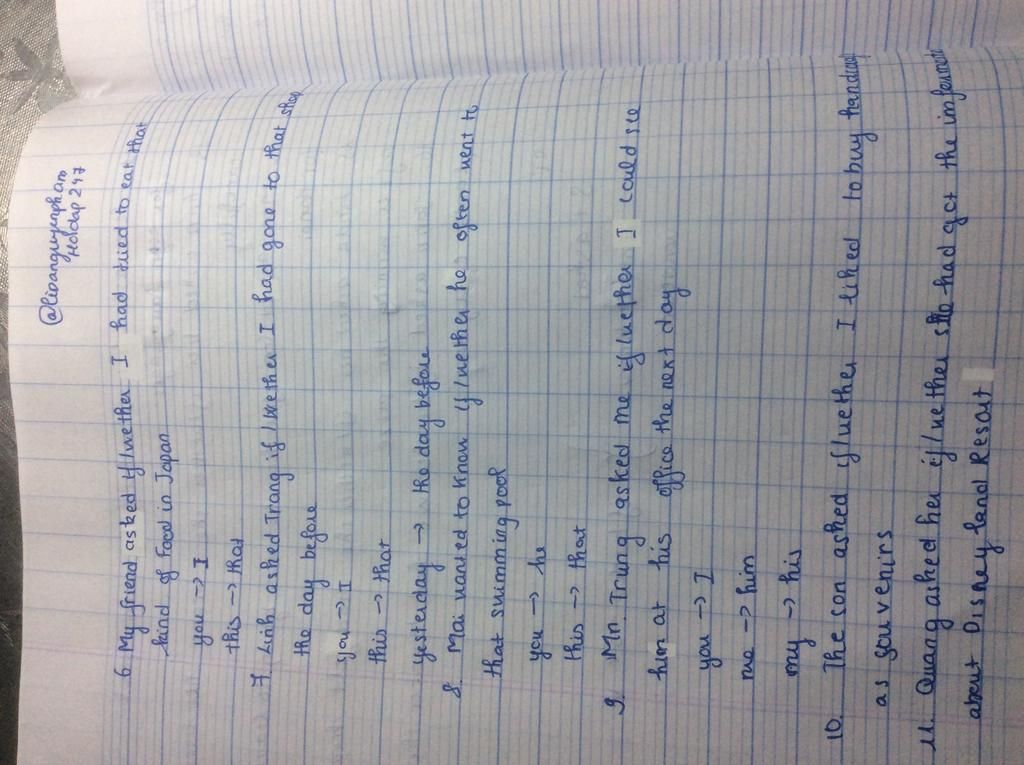 @lioanguyenpham
Hoidap 247
6 My friend asked if/wether I had tried to eat that
kind of Food in Japan
you -> I
this -> that
7. Linh asked Trang if/wether I had gone to that shop
the day before
you -> I
this -> that
yesterday -> the day before
8. Mai wanted to know if/wether he often went to
that swimming pool
you -> he
this -> that
9. Mr Trung asked me if/wether I could see
him at his office the next day
you -> I
me -> him
my -> his
10. The son asked if/wether I liked to buy handicraft
as souvenirs
11. Quang asked her if/wether she had got the
about Disney land Resort